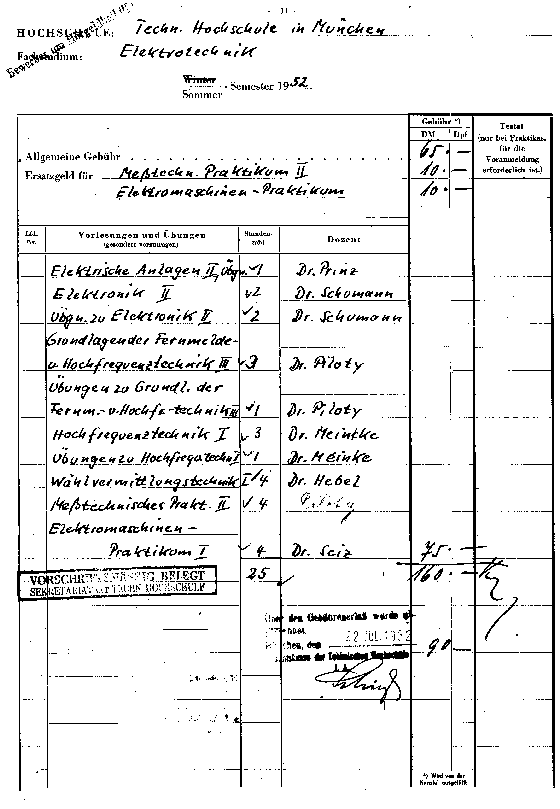 - 11 -
HOCHSCHULE: Techn. Hochschule in München
Fachstudium: Elektrotechnik
Winter
Sommer - Semester 1952.
Gebühr *)
DM Dpf
Testat
(nur bei Praktikas,
für die
Voranmeldung
erforderlich ist.)
Allgemeine Gebühr 65.—
Ersatzgeld für Meßtechn. Praktikum II 10.—
Elektromaschinen-Praktikum 10.—
Lfd. Nr. Vorlesungen und Übungen Stundenzahl Dozent
(gesondert voneinander)
Elektrische Anlagen II, Übgn. 1 Dr. Prinz
Elektronik II 2 Dr. Schumann
Übgn. zu Elektronik II 2 Dr. Schumann
Grundlagen der Fernmelde-
u. Hochfrequenztechnik III 3 Dr. Piloty
Übungen zu Grundl. der
Fernm.- u. Hochfr.-technik III 1 Dr. Piloty
Hochfrequenztechnik I 3 Dr. Meinke
Übungen zu Hochfrequ.techn. I 1 Dr. Meinke
Wählvermittlungstechnik I 4 Dr. Hebel
Meßtechnisches Prakt. II 4 Piloty
Elektromaschinen-
Praktikum I 4 Dr. Seiz 75.—
25 160.—
VORSCHRIFTSMÄSSIG BELEGT
SEKRETARIAT DER TECHN. HOCHSCHULE
Über den Gebührenerlaß wurde
den 22 JUL 1952
der Technischen Hochschule
I. A.
90
*) Wird von der
Kanzlei ausgefüllt